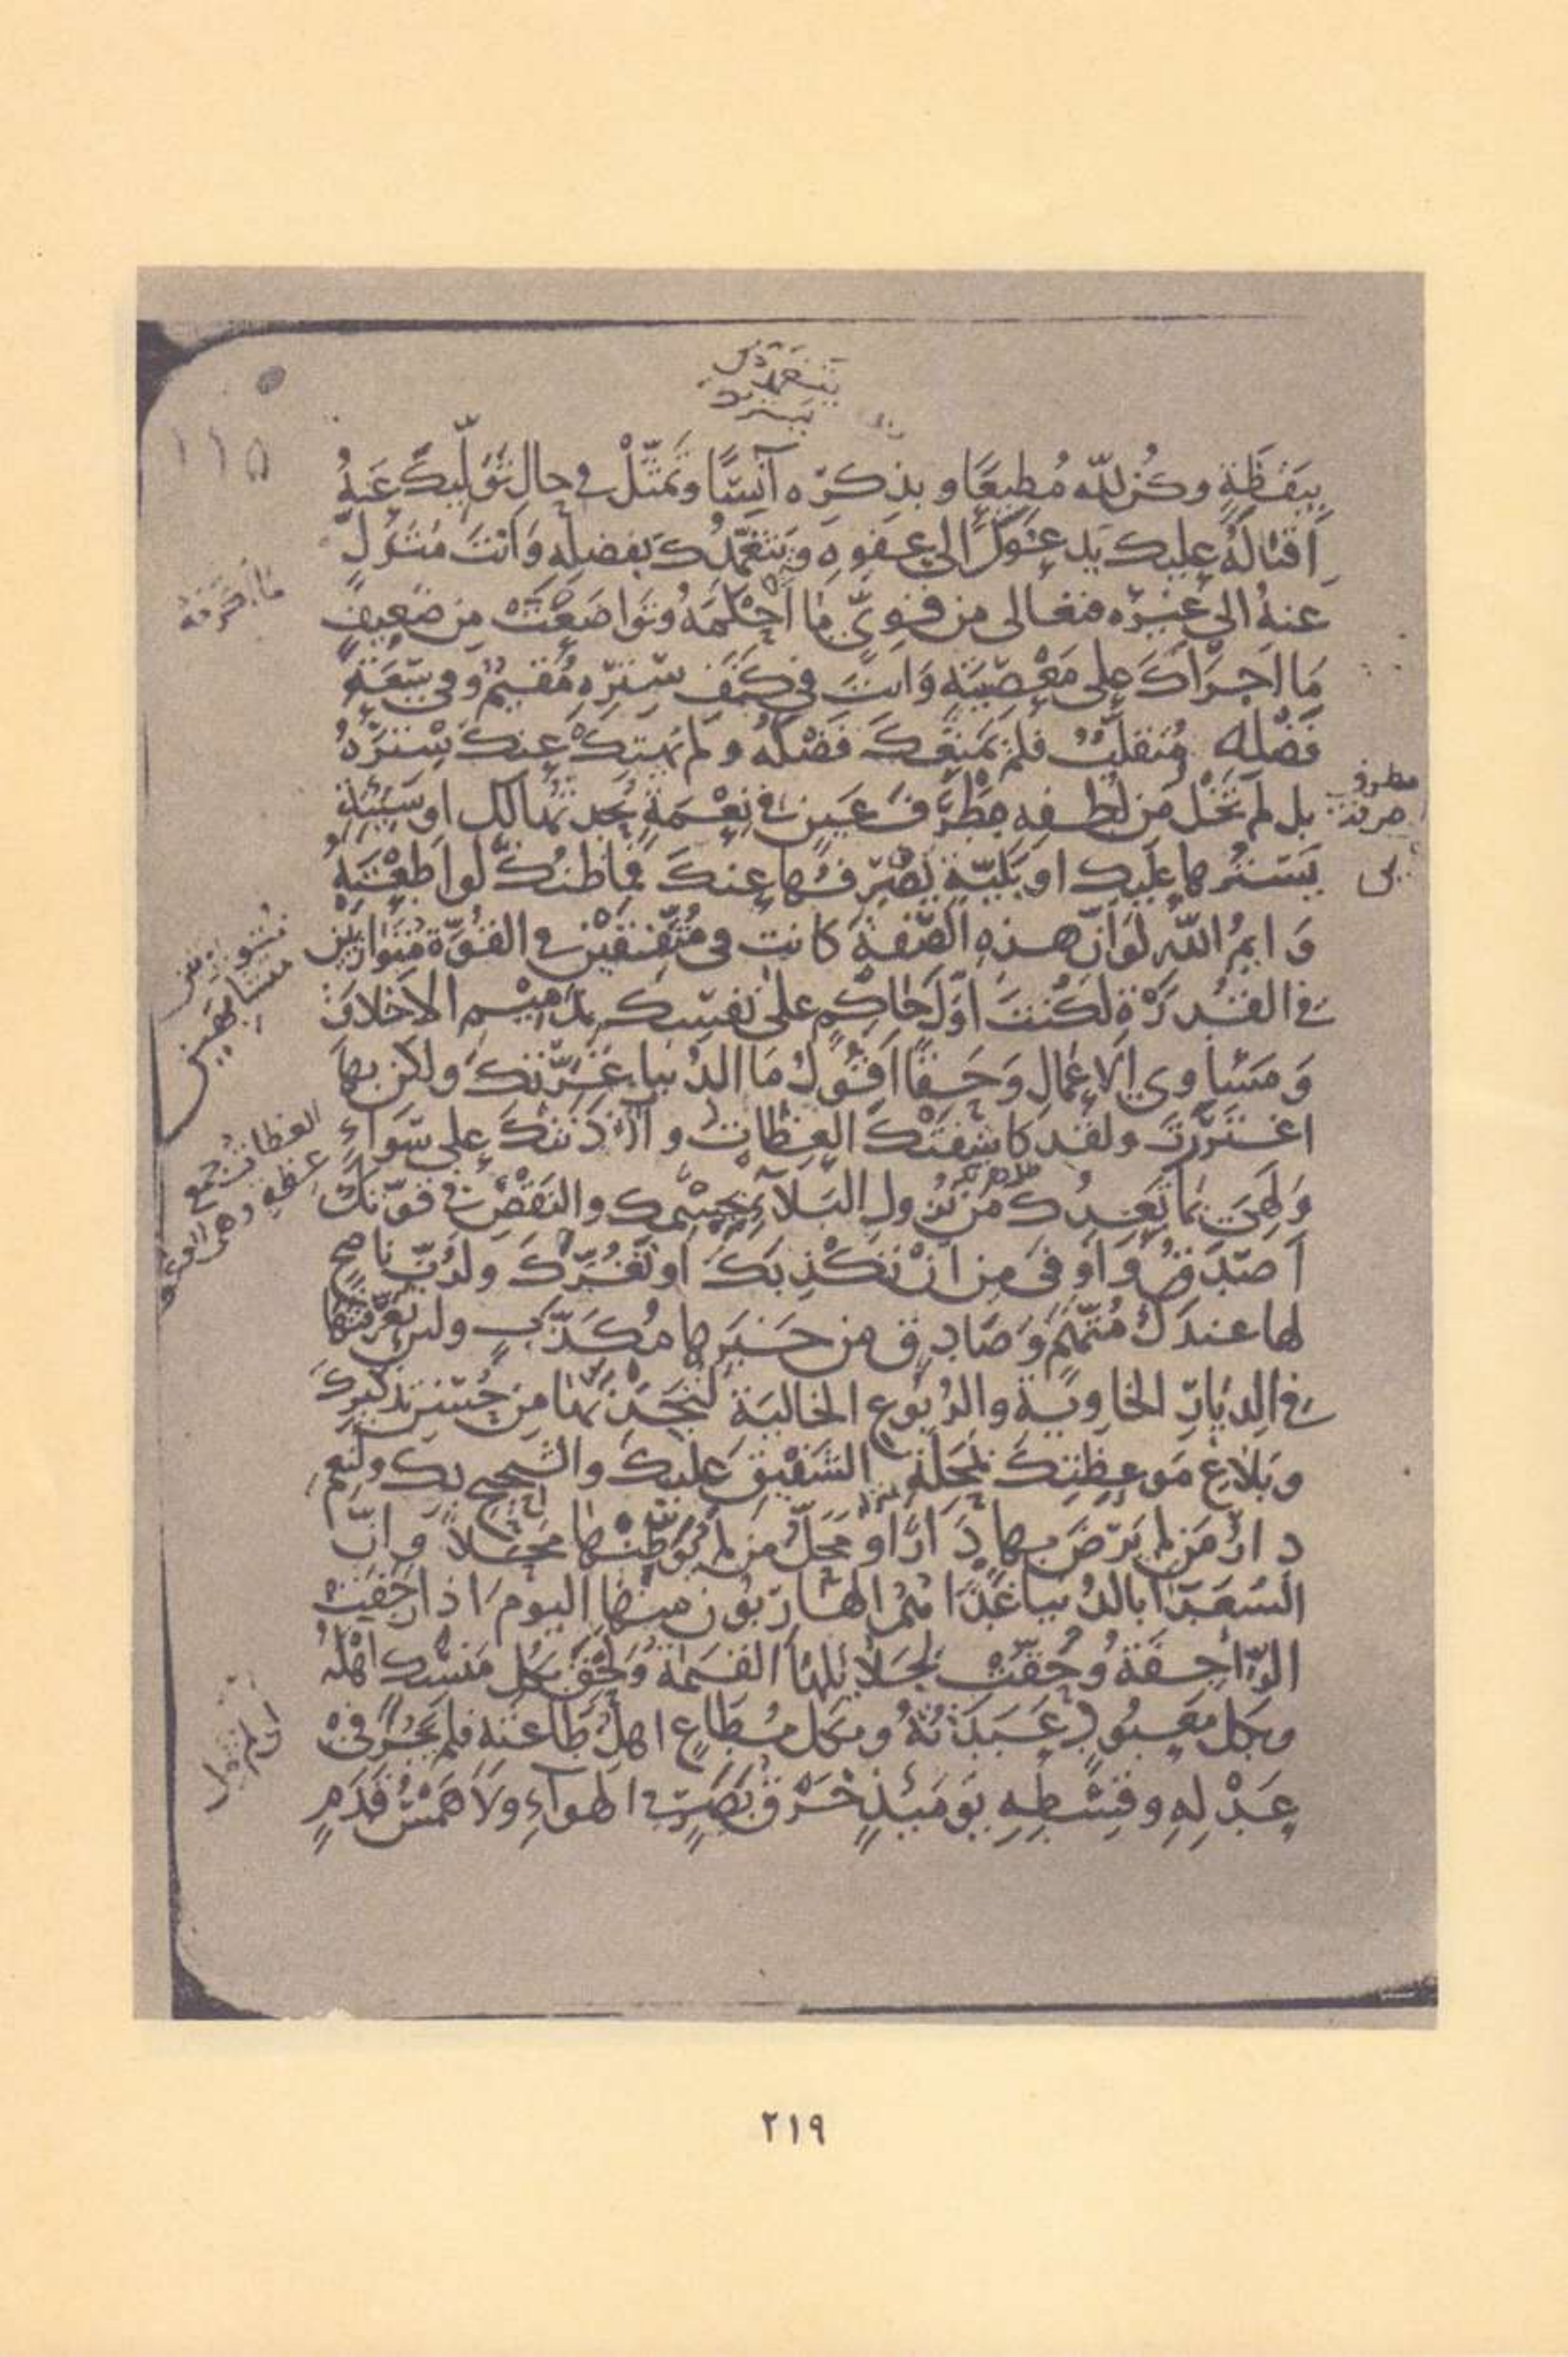 يتغمدك
بستره
١١٥
بِيَقَظَةٍ وكُن لِلّه مُطِيعًا وبذِكرِه آنِسًا وتَمَثَّلْ في حالِ تَوَلِّيكَ عَنهُ
اِقبَالَهُ عليك يَدعُوكَ الى عَفوِهِ ويَتَغَمَّدُكَ بفضلِهِ وَاَنتَ مُتَوَلٍّ
عنهُ الى غَيرِه فتعالى من قوىٍّ ما اَحْلَمَهُ وتَواضَعْتَ من ضَعِيفٍ
مَا اَجرَاَكَ على مَعْصِيَتِهِ وَانتَ في كَنَفِ سِترِهِ مُقيمٌ وفي سَعَةِ
فَضْلِهِ مُتَقَلِّبٌ فلم يَمنَعكَ فَضْلَهُ ولم يَهتِكْ عنكَ سِترَهُ
بل لم تَخْلُ من لُطفِهِ مَطْرَفَ عَينٍ في نِعْمَةٍ يُحدِثُهَا لك او سَيِّئةٍ
يَستُرُها عليك او بَلِيّةٍ يَصْرِفُها عنكَ فما ظنُّكَ لو اَطَعْتَهُ
وَايمُ اللّه لَو اَنّ هذه الصّفةَ كانت في مُتَّفِقَيْنِ في القُوَّةِ مُتَوَازِيَيْنِ
في القُدرَةِ لَكُنتَ اَوَّلَ حَاكِمٍ على نَفسِك بذَميمِ الاَخلاقِ
وَمَسَاوى الاَعمالِ وَحَقًّا اَقُولُ مَا الدُنيا غَرَّتكَ ولكن بها
اغتَرَرتَ ولقد كاشَفَتْكَ العِظَاتِ وآذَنَتكَ على سَواءٍ
وَلَهِىَ بما تَعِدُكَ من نُزولِ البَلآءِ بجِسْمِك والنَقْضِ في قوّتك
اَصدَقُ وَاَوفى مِن اَنْ تَكْذِبَكَ او تَغُرَّكَ ولَرُبَّ ناصحٍ
لها عندَكَ مُتَّهَمٌ وَصَادِقٍ من خَبَرِها مُكَذَّبٍ ولئن تَعَرَّفتَها
في الدِيَارِ الخَاوِيةِ والرُبُوعِ الخاليةِ لَتَجِدَنَّها من حُسنِ تذكيرِكَ
وبَلاغِ مَوعِظَتِكَ بمَحَلّةِ الشَفيقِ عليكَ والشحيحِ بك ولَنِعمَ
دارُ مَن لم يَرضَ بها دَارًا ومَحَلُّ من لم يُوَطِّنْها مَحَلًّا وَانّ
السُعَدَآءَ بالدُنيا غَدًا هُمُ الهاربُونَ منها اليومَ اذا رَجَفَتِ
الرّاجِفَةُ وحَقَّتْ بجَلائِلِها القيمةُ ولَحِقَ بكل مَنسَكٍ اَهْلُهُ
وبكل مَعبُودٍ عَبَدَتُهُ وبكل مُطَاعٍ اهلُ طَاعَتِهِ فلم يَجْرِ في
عَدْلِهِ وقِسْطِهِ يَومَئذٍ خَرقُ بَصَرٍ في الهوآءِ ولاَ هَمْسُ قَدَمٍ
مطرف
بلى
متوازيين
العظات جمع
عظه
٢١٩